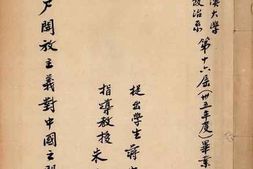 漢大學
政治系
第十六屆(卅五年度)畢業
戶開放主義對中國之
提出學生
指導教授朱